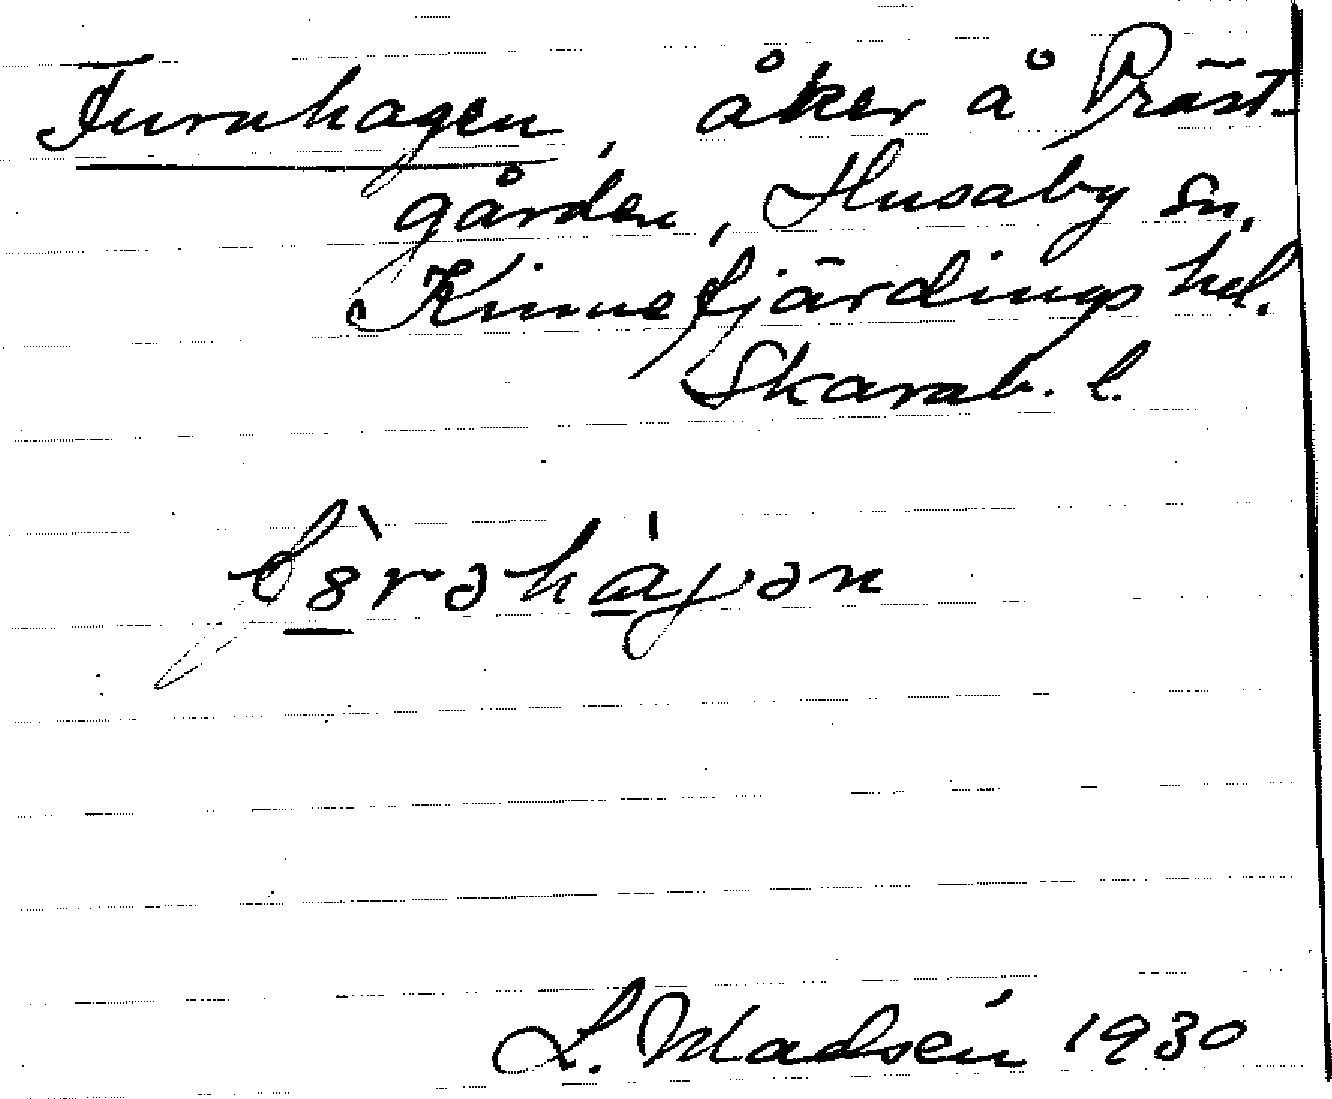 Furuhagen, åker å Präst-
gården, Husaby sn,
Kinnefjärdings hd.
Skarab. l.
L. Madsén 1930